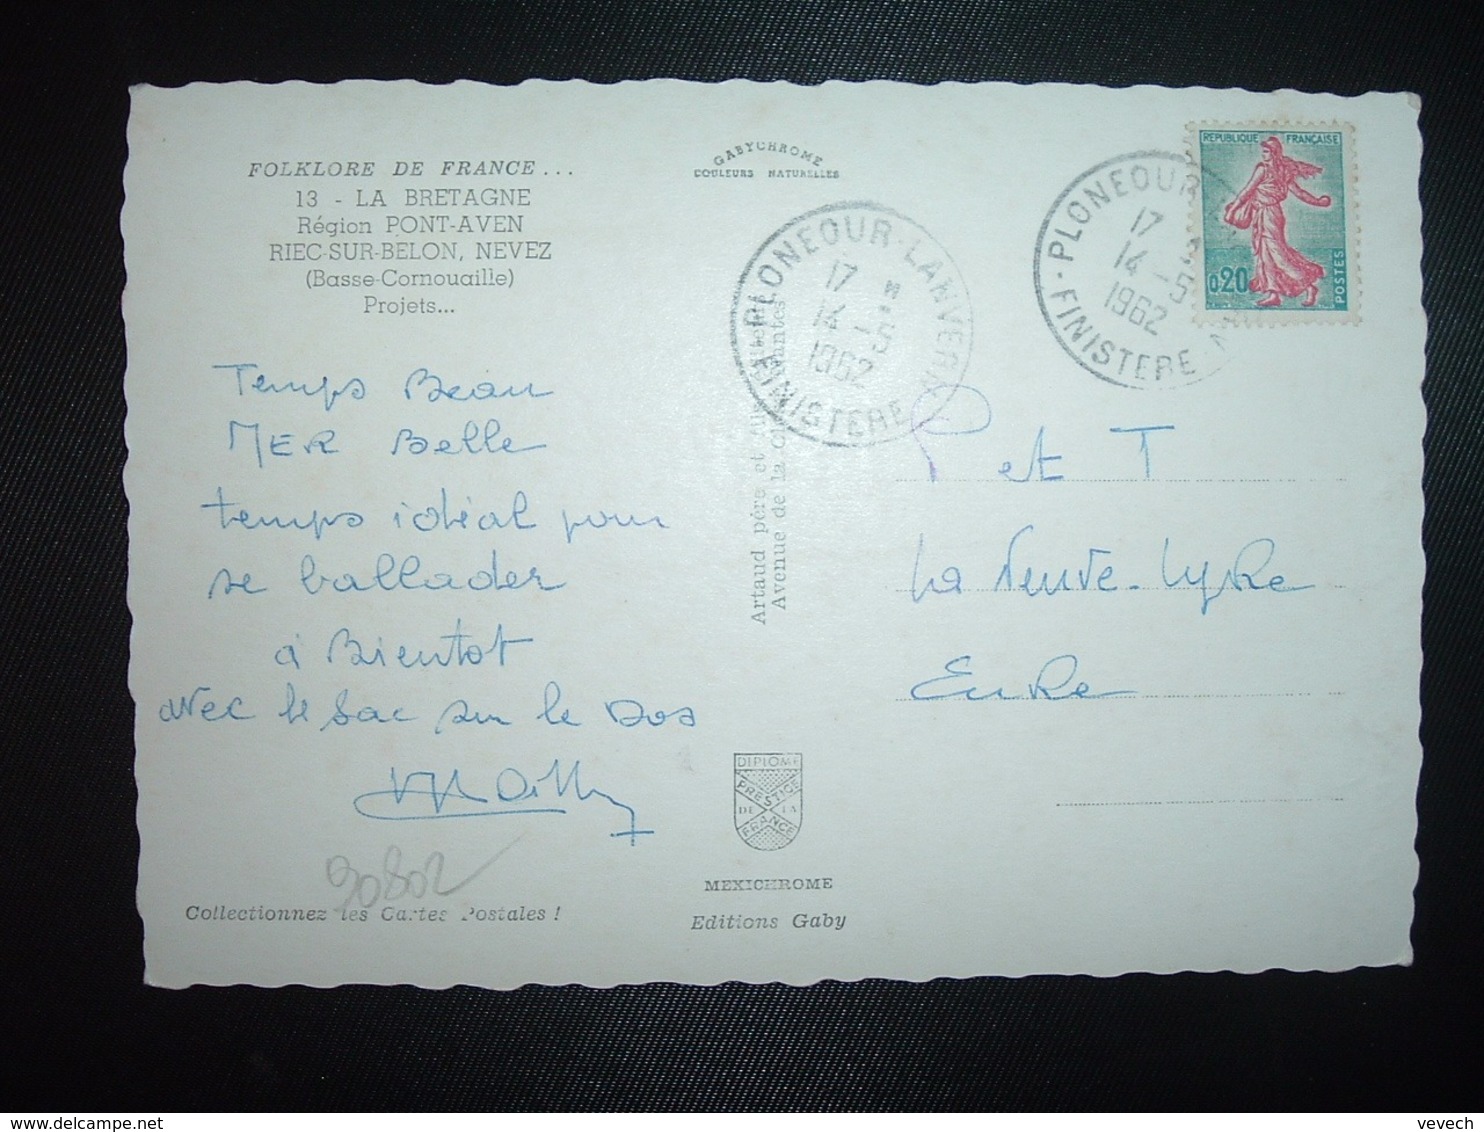 FOLKLORE DE FRANCE ...
13 - LA BRETAGNE
Région PONT-AVEN
RIEC-SUR-BELON, NEVEZ
(Basse-Cornouaille)
Projets...
Temps Beau
MER Belle
temps idéal pour
se ballader
à Bientot
avec le sac sur le dos
90802
Collectionnez les Cartes Postales !
GABYCHROME
COULEURS NATURELLES
PLONEOUR-LANVERN
17 H
14 -5
1962
FINISTERE
Artaud père et fils
Avenue de la
DIPLOME
PRESTIGE
DE LA
FRANCE
MEXICHROME
Editions Gaby
PLONEOUR
17
14 -5
1962
FINISTERE
REPUBLIQUE FRANÇAISE
0,20
POSTES
et T
La Neuve-Lyre
Eure
delcampe.net
vevech